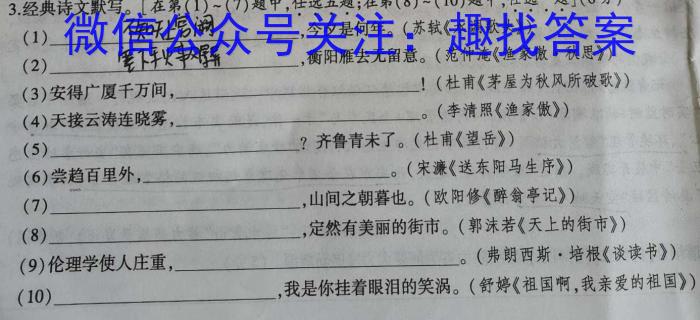 3.经典诗文默写。[在第(1)~(7)题中,任选五题;在第(8)~(10)题中,任选
微信公众号关注：趣找答案
(1) ,今夕是何年。(苏轼
(2) ,衡阳雁去无留意。(范仲淹《渔家傲·秋思》)
(3)安得广厦千万间, ！(杜甫《茅屋为秋风所破歌》)
(4)天接云涛连晓雾, 。(李清照《渔家傲》)
(5) ？齐鲁青未了。(杜甫《望岳》)
(6)尝趋百里外, 。(宋濂《送东阳马生序》)
(7) ,山间之朝暮也。(欧阳修《醉翁亭记》)
(8) ,定然有美丽的街市。(郭沫若《天上的街市》)
(9)伦理学使人庄重, 。(弗朗西斯·培根《谈读书》)
(10) ,我是你挂着眼泪的笑涡。(舒婷《祖国啊,我亲爱的祖国》)